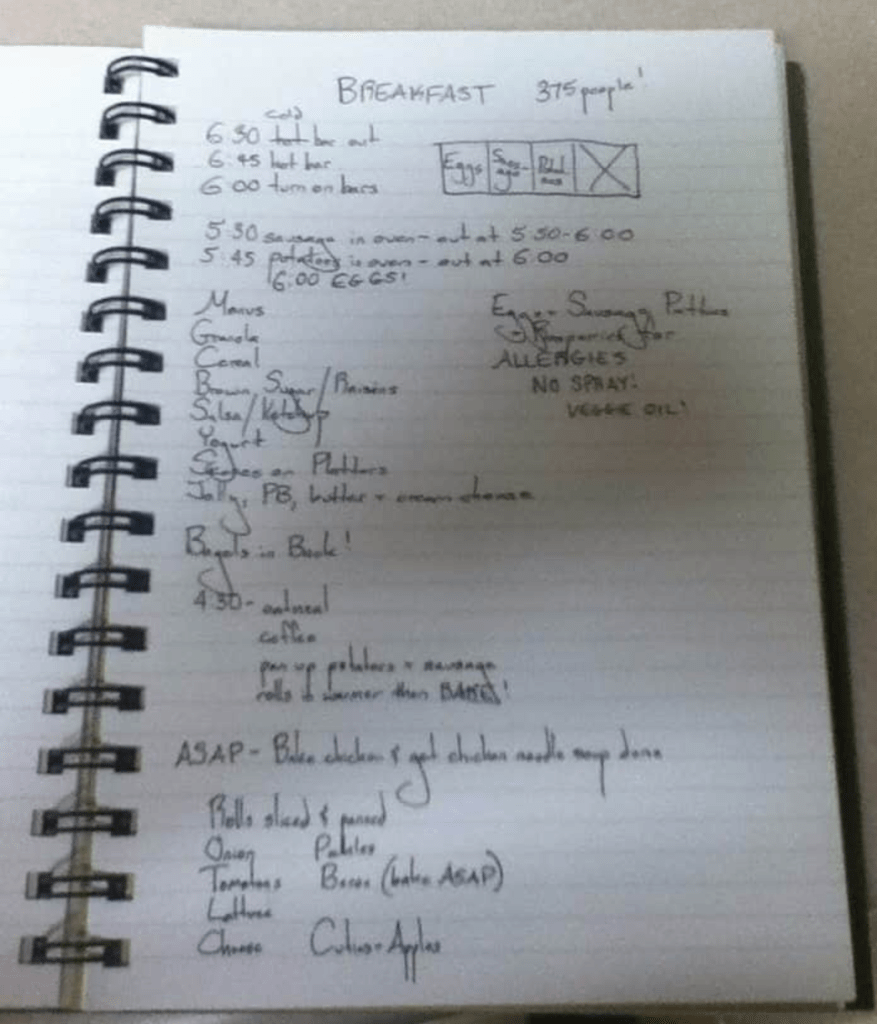 BREAKFAST 375 people!
cold
6:30 hot bar out
6:45 hot bar
6:00 turn on bars
Eggs Saus-age Potatoes
5:30 sausage in oven - out at 5:50-6:00
5:45 potatoes in oven - out at 6:00
6:00 EGGS!
Menus
Granola
Cereal
Brown Sugar/Raisins
Salsa/Ketchup
Yogurt
on Platters
Jelly, PB, butter + cream cheese
Eggs + Sausage Patties
Prepared for
ALLERGIES
NO SPRAY!
VEGGE OIL!
Bagels in Back!
4:30 - oatmeal
coffee
pan up potatoes + sausage
rolls in warmer then BAKE!
ASAP - Bake chicken & get chicken noodle soup done
Rolls sliced & panned
Onion Pickles
Tomatoes Bacon (bake ASAP)
Lettuce
Cheese Cuties + Apples